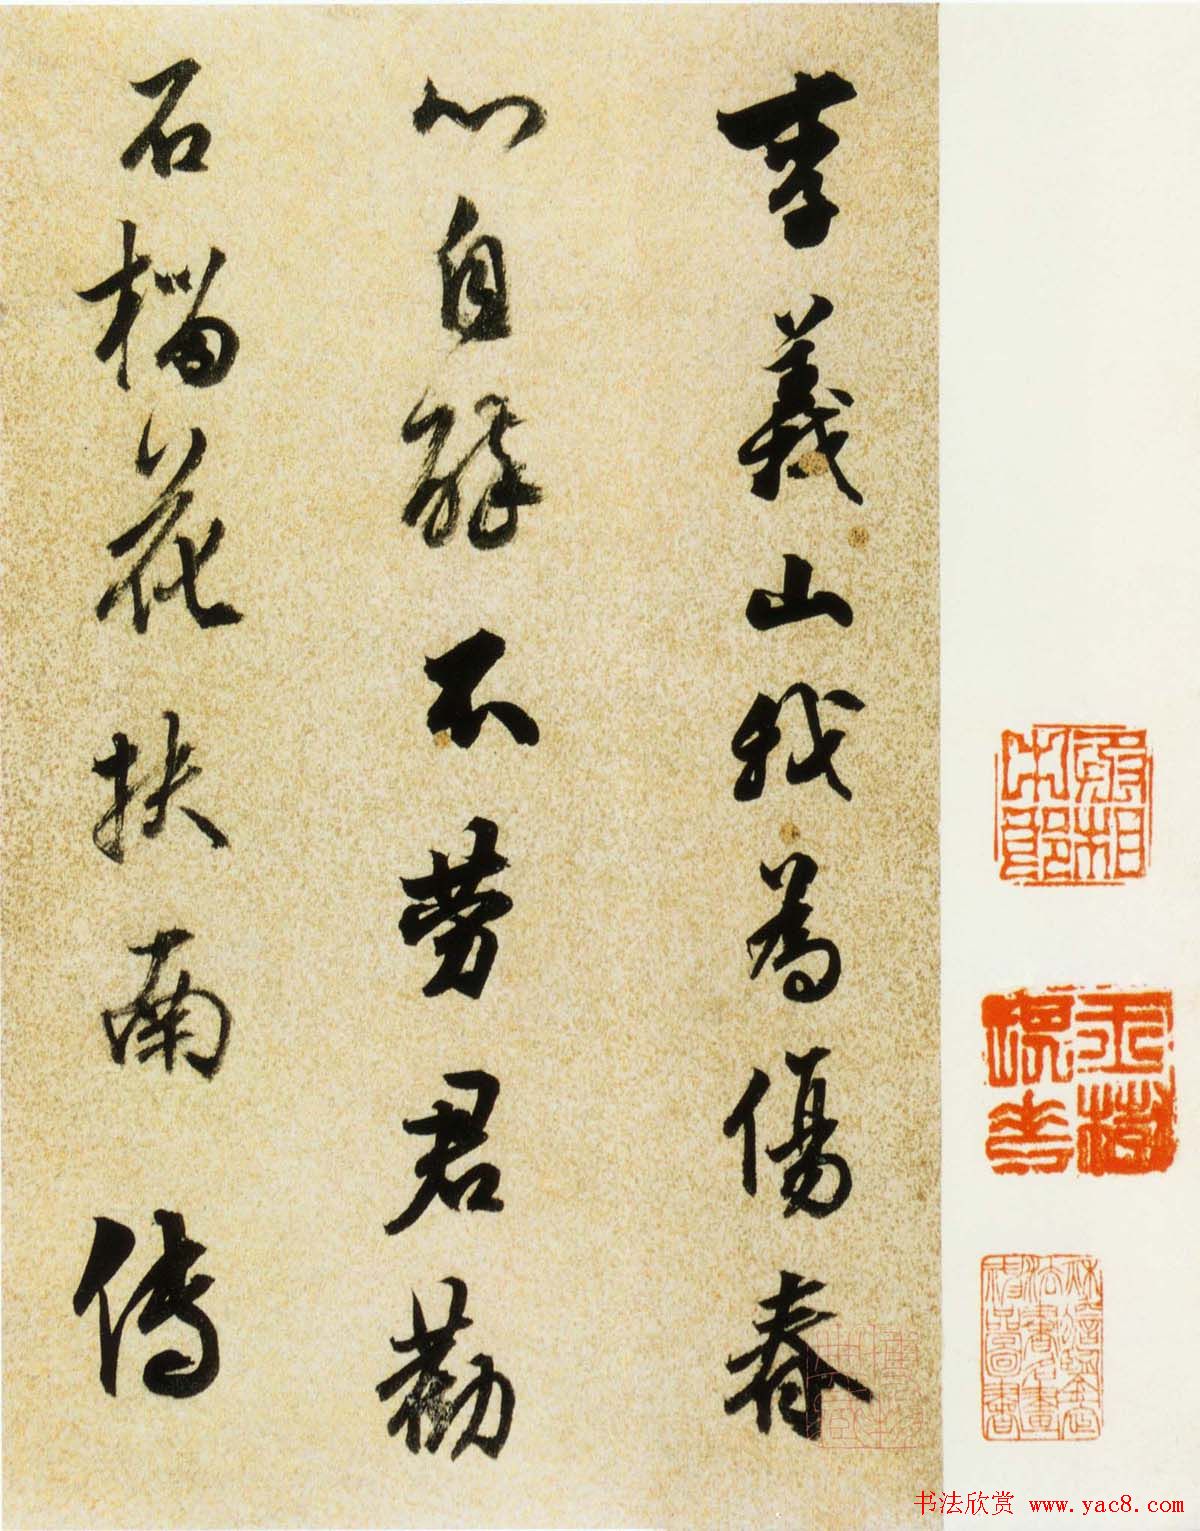 李義山我為傷春
心自醉不勞君勸
石榴花扶南傳
书法欣赏 www.yac8.com